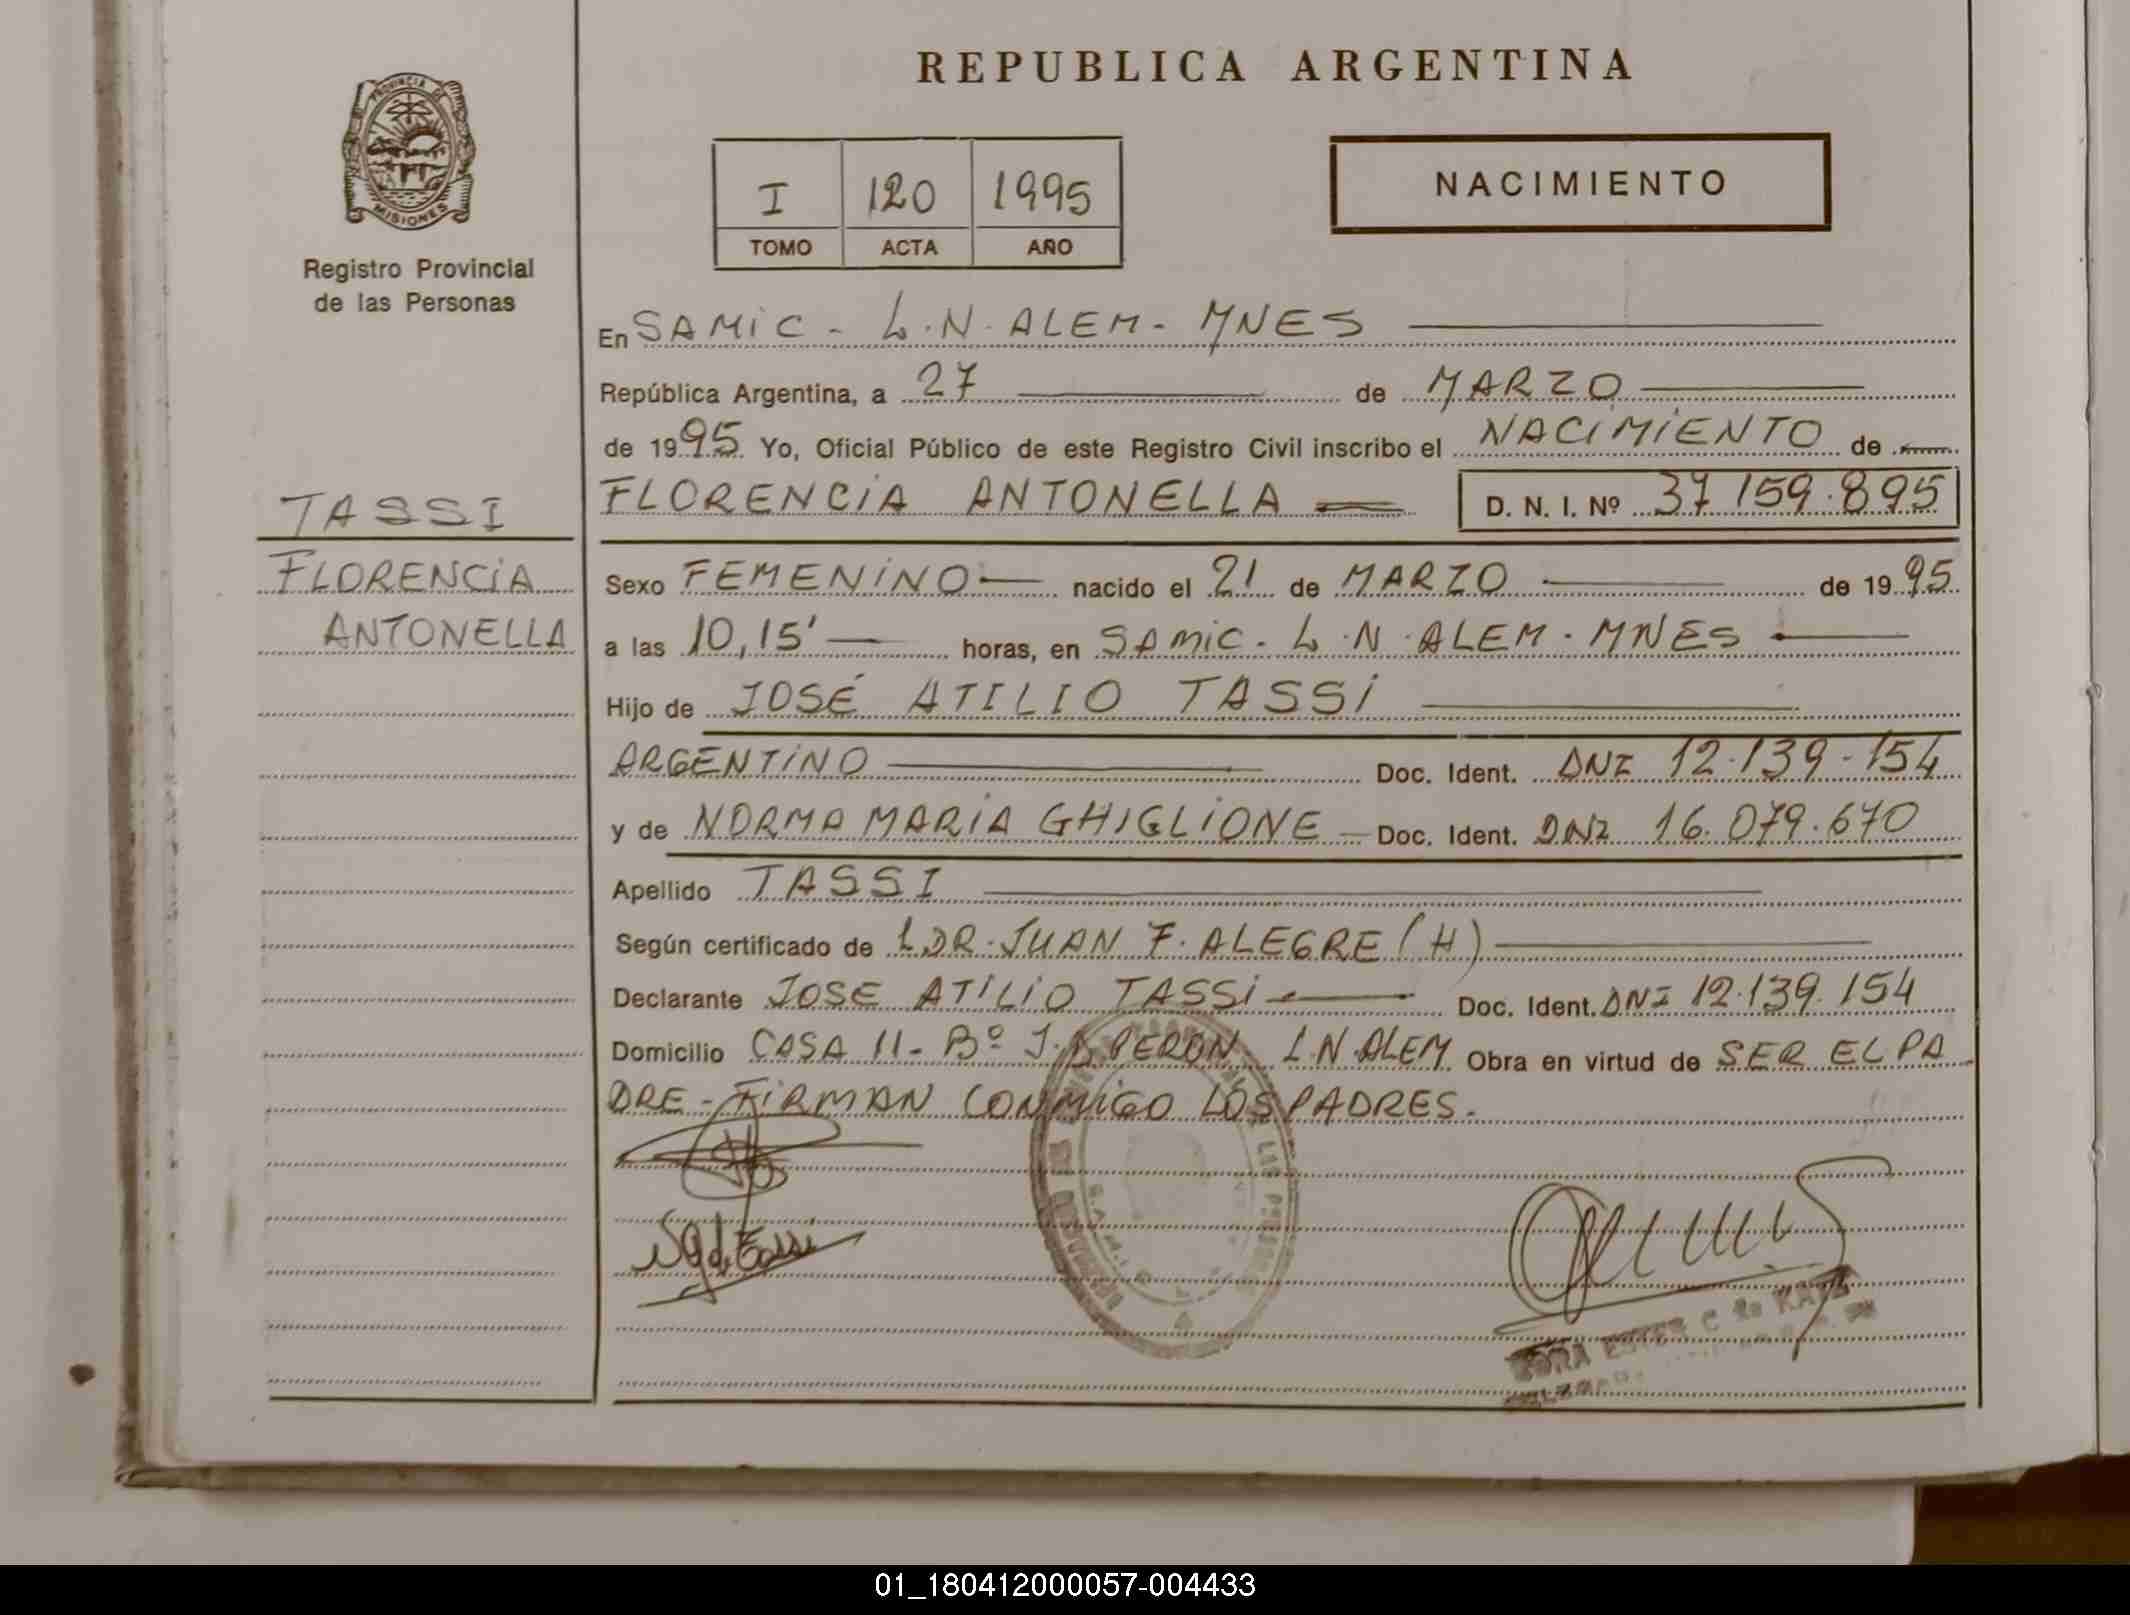 REPUBLICA ARGENTINA
PROVINCIA DE
MISIONES
Registro Provincial
de las Personas
I 120 1995
TOMO ACTA AÑO
NACIMIENTO
En SAMIC - L.N. ALEM - MNES
República Argentina, a 27 de MARZO
de 1995 Yo, Oficial Público de este Registro Civil inscribo el NACIMIENTO de
FLORENCIA ANTONELLA D. N. I. Nº 37 159.895
TASSI
FLORENCIA
ANTONELLA
Sexo FEMENINO nacido el 21 de MARZO de 1995
a las 10,15' horas, en SAMIC - L.N. ALEM - MNES
Hijo de JOSÉ ATILIO TASSI
ARGENTINO Doc. Ident. DNI 12.139-154
y de NORMA MARIA GHIGLIONE Doc. Ident. DNI 16.079.670
Apellido TASSI
Según certificado de DR. JUAN F. ALEGRE (H)
Declarante JOSE ATILIO TASSI Doc. Ident. DNI 12.139.154
Domicilio CASA 11 - Bº J. D. PERON L.N. ALEM Obra en virtud de SER EL PA
DRE - FIRMAN CONMIGO LOS PADRES.
de Tassi
ESTER C de KATZ
01_180412000057-004433